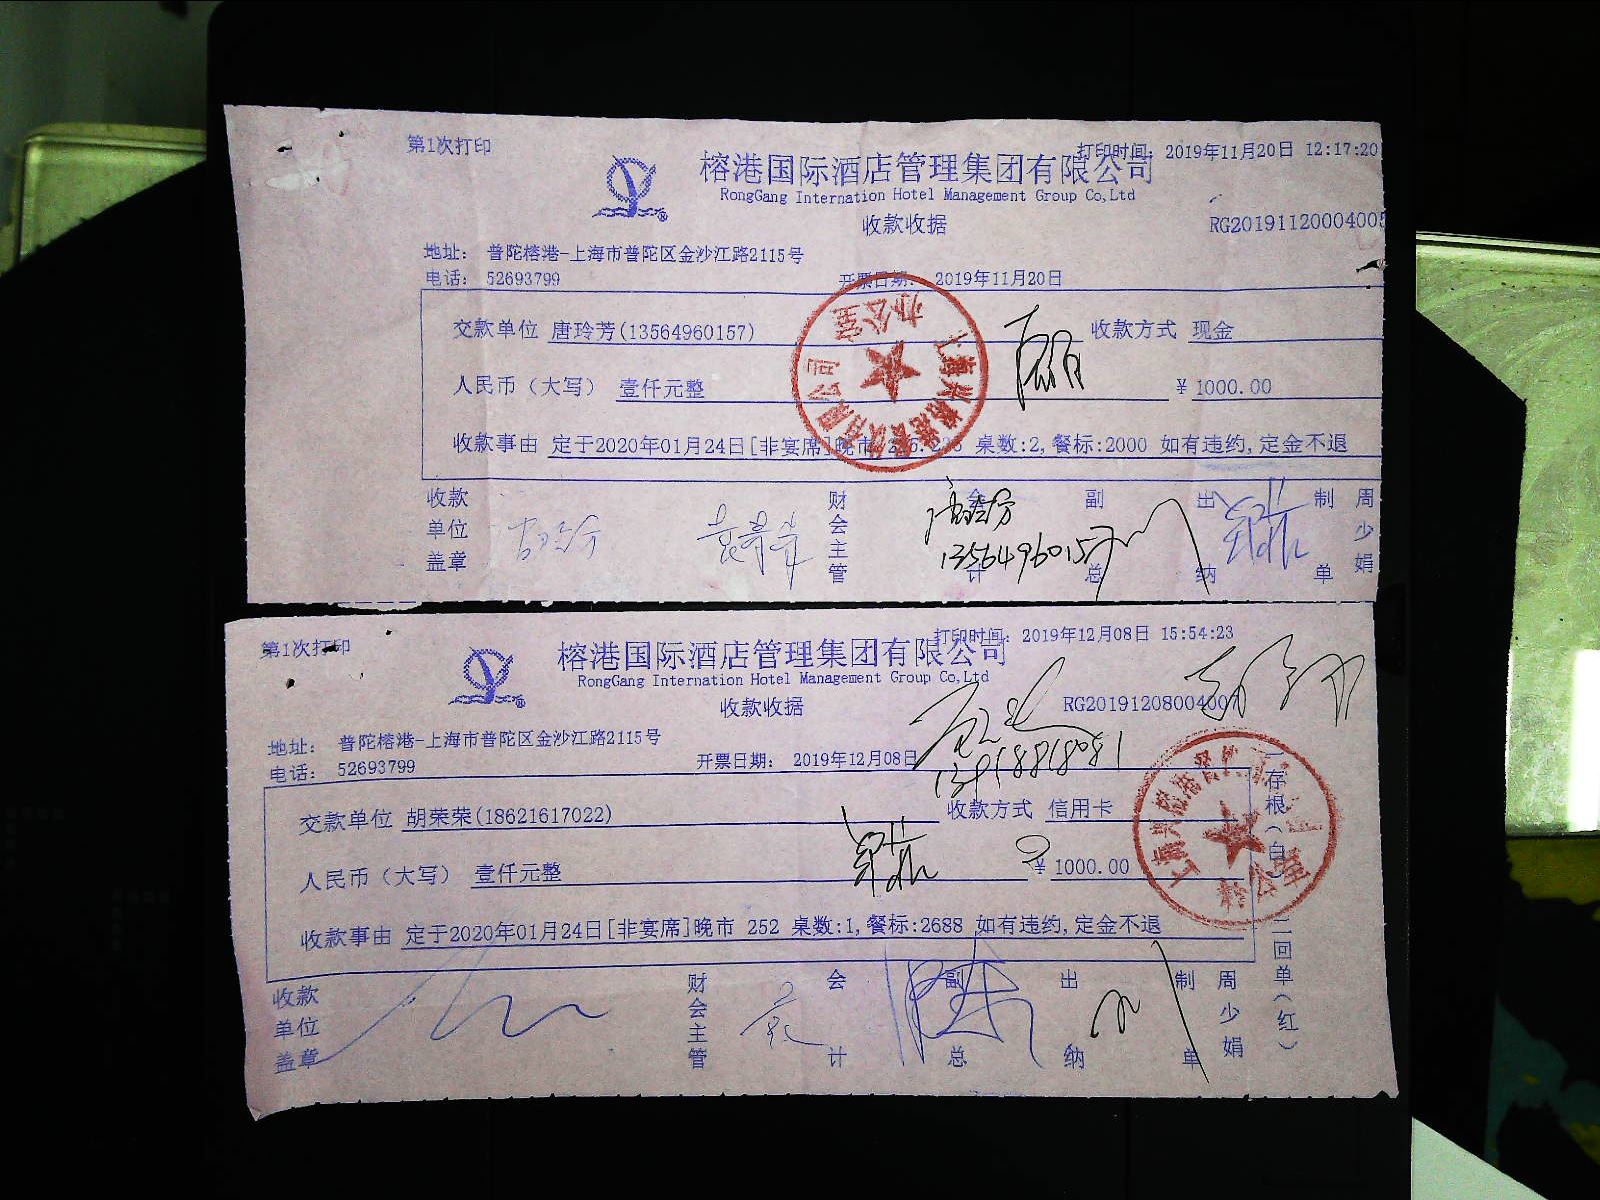 第1次打印
打印时间: 2019年11月20日 12:17:20
榕港国际酒店管理集团有限公司
RongGang Internation Hotel Management Group Co,Ltd
收款收据
RG20191120004005
地址: 普陀榕港-上海市普陀区金沙江路2115号
电话: 52693799
开票日期: 2019年11月20日
交款单位 唐玲芳(13564960157) 收款方式 现金
人民币（大写） 壹仟元整 ¥ 1000.00
收款事由 定于2020年01月24日[非宴席]晚市 桌数:2,餐标:2000 如有违约,定金不退
收款单位盖章 财会主管 会计 副总 出纳 制单 周少娟
13564960157
第1次打印
打印时间: 2019年12月08日 15:54:23
榕港国际酒店管理集团有限公司
RongGang Internation Hotel Management Group Co,Ltd
收款收据
RG20191208004007
地址: 普陀榕港-上海市普陀区金沙江路2115号
电话: 52693799
开票日期: 2019年12月08日
交款单位 胡荣荣(18621617022) 收款方式 信用卡
人民币（大写） 壹仟元整 ¥ 1000.00
收款事由 定于2020年01月24日[非宴席]晚市 252 桌数:1,餐标:2688 如有违约,定金不退
收款单位盖章 财会主管 会计 副总 出纳 制单 周少娟
存根（白） 二回单（红）